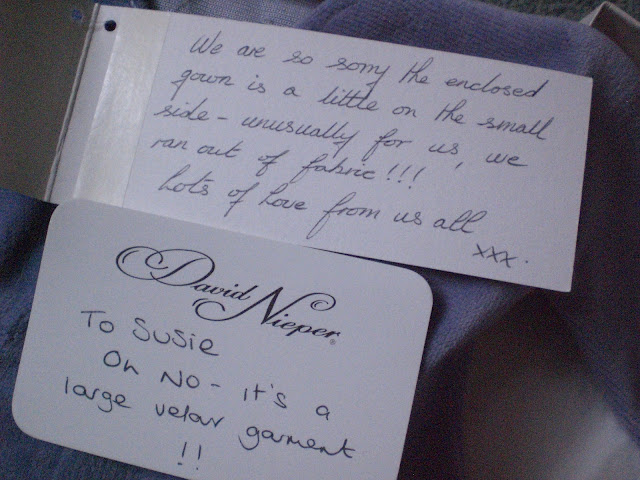 We are so sorry the enclosed
gown is a little on the small
side - unusually for us, we
ran out of fabric!!!
Lots of love from us all
xxx.
David Nieper
To Susie
Oh No - it's a
large velour garment
!!